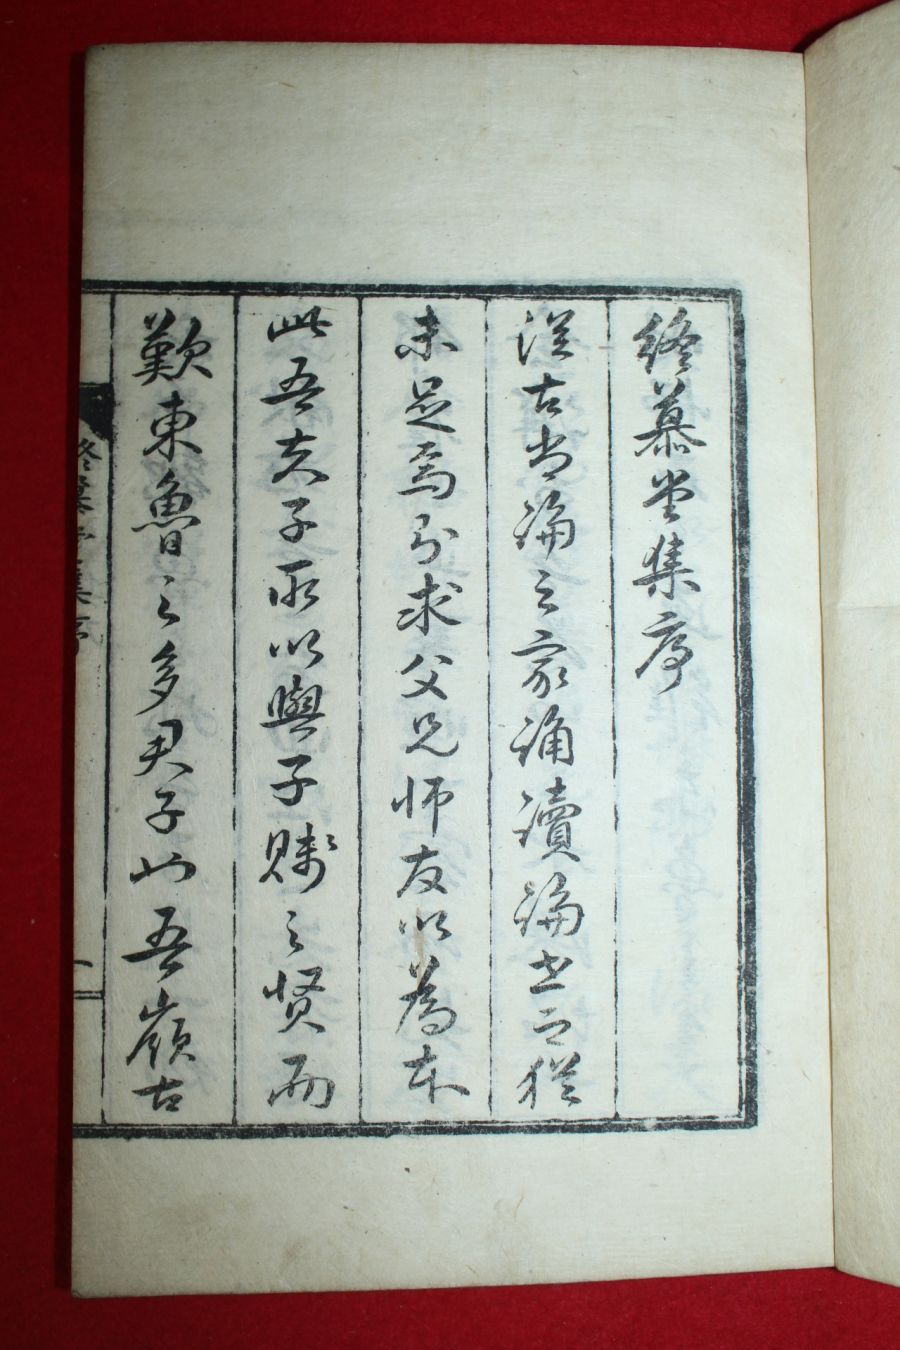 終慕堂集序
從古尚論之家誦讀論世之猶
未足焉乃求父兄師友以爲本
此吾夫子所以與子賤之賢而
歎東魯之多君子也吾嶺古
終慕堂集序